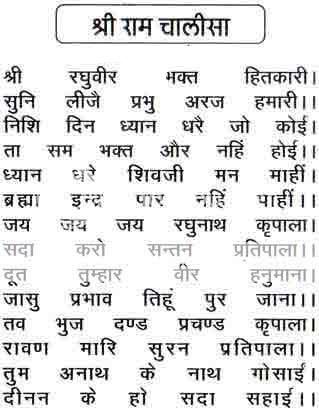 श्री राम चालीसा
श्री रघुवीर भक्त हितकारी।
सुनि लीजै प्रभु अरज हमारी।।
निशि दिन ध्यान धरै जो कोई।
ता सम भक्त और नहिं होई।।
ध्यान धरे शिवजी मन माहीं।
ब्रह्मा इन्द्र पार नहिं पाहीं।।
जय जय जय रघुनाथ कृपाला।
सदा करो सन्तन प्रतिपाला।।
दूत तुम्हार वीर हनुमाना।
जासु प्रभाव तिहूं पुर जाना।।
तव भुज दण्ड प्रचण्ड कृपाला।
रावण मारि सुरन प्रतिपाला।।
तुम अनाथ के नाथ गोसाईं।
दीनन के हो सदा सहाई।।